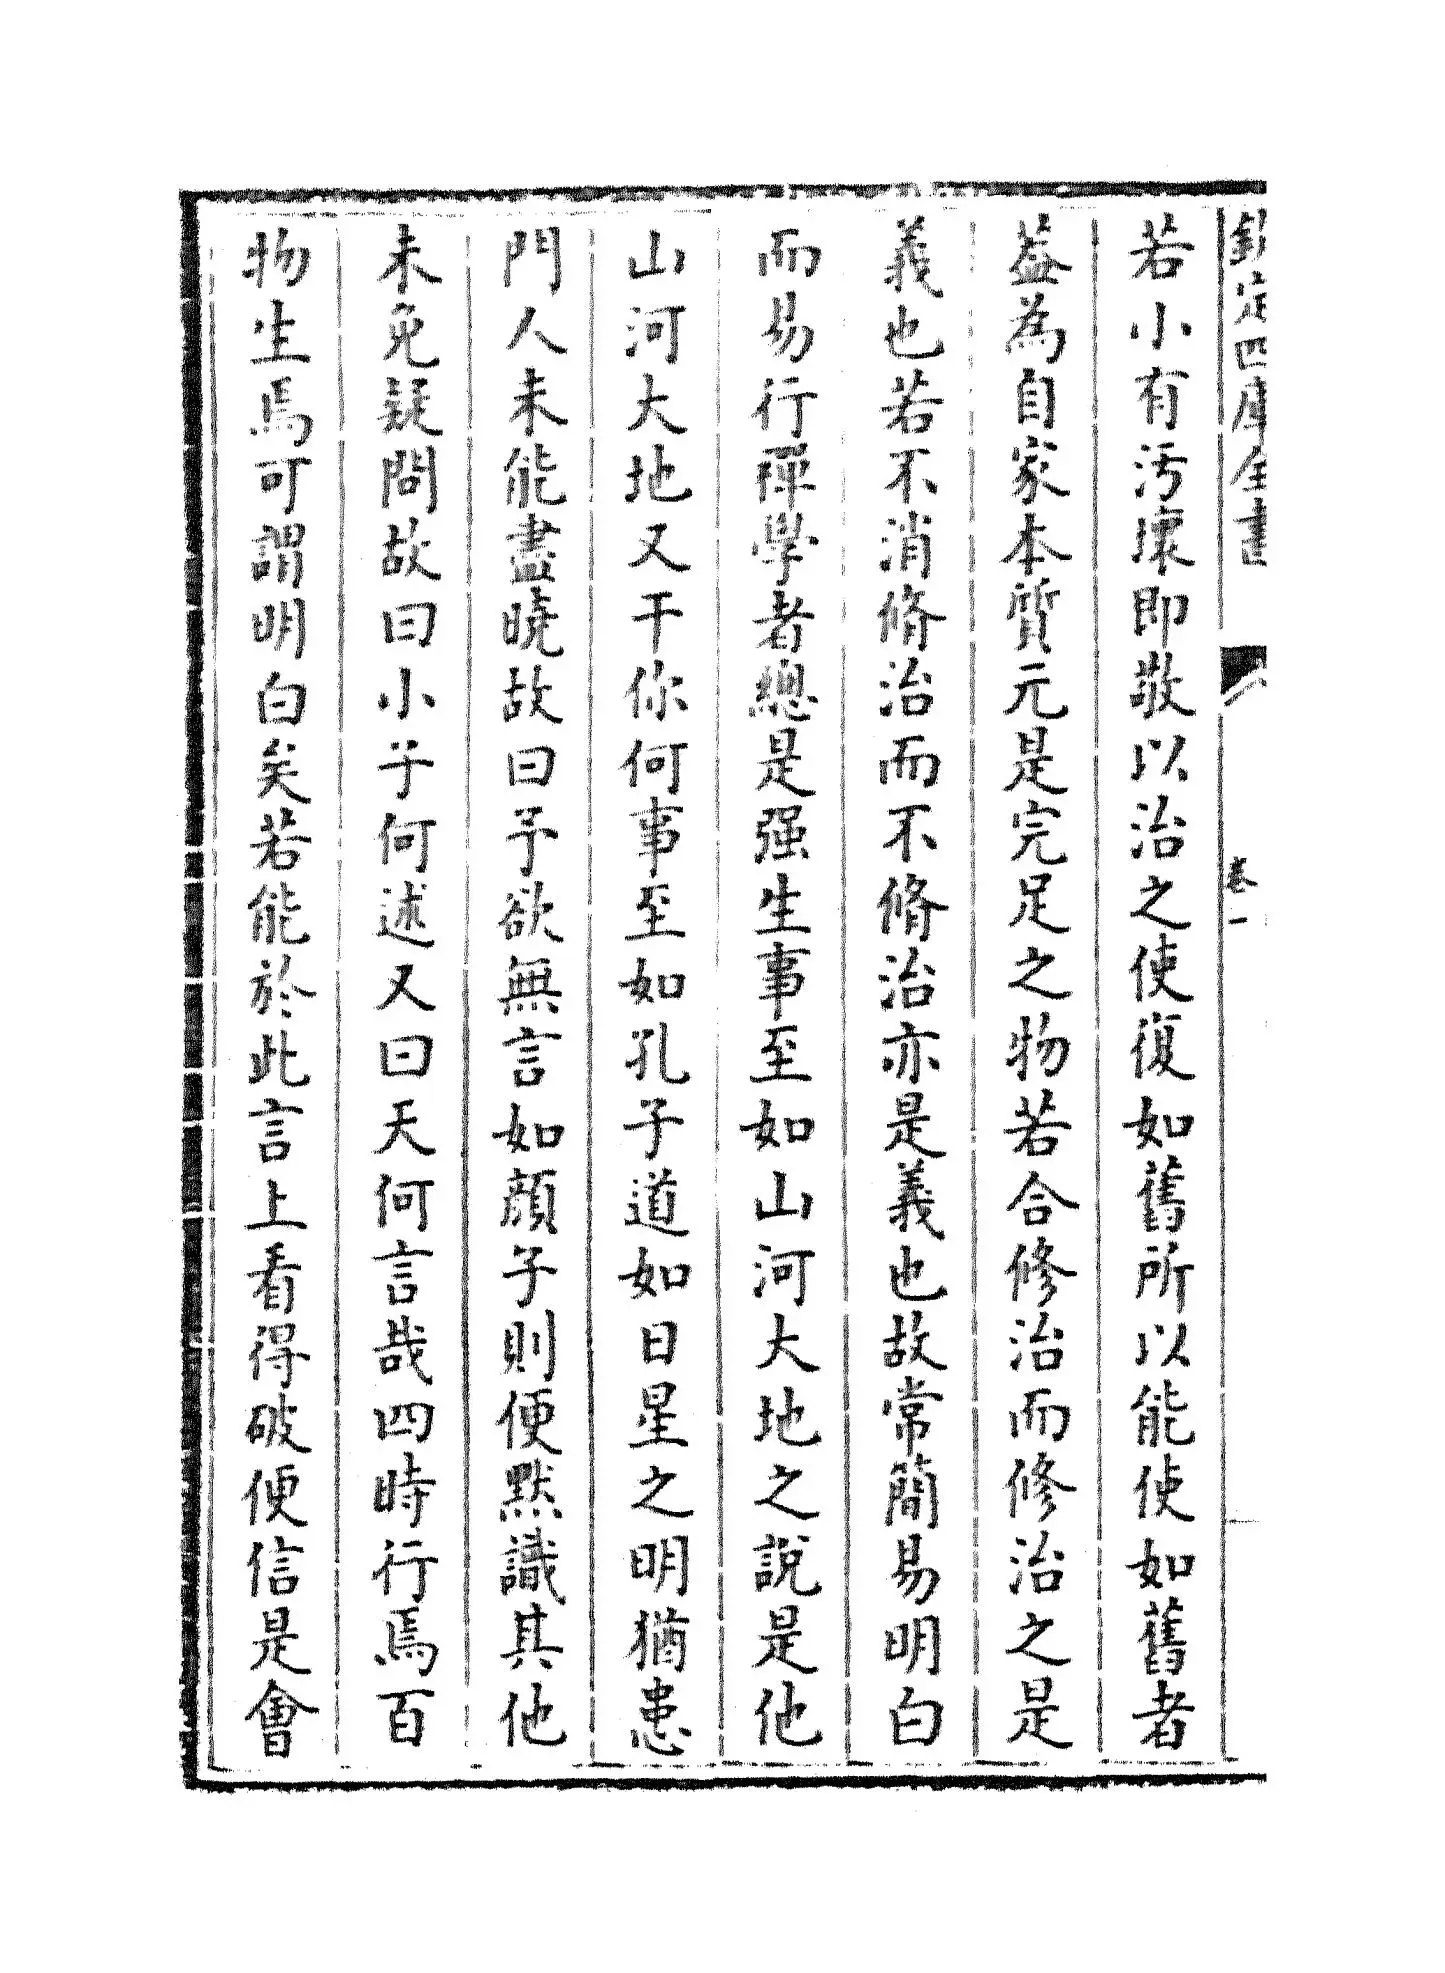 欽定四庫全書
卷一
若小有汚壞即敬以治之使復如舊所以能使如舊者
葢為自家本質元是完足之物若合修治而修治之是
義也若不消脩治而不脩治亦是義也故常簡易明白
而易行禪學者總是强生事至如山河大地之說是他
山河大地又干你何事至如孔子道如日星之明猶患
門人未能盡曉故曰予欲無言如顔子則便黙識其他
未免疑問故曰小子何述又曰天何言哉四時行焉百
物生焉可謂明白矣若能於此言上看得破便信是會